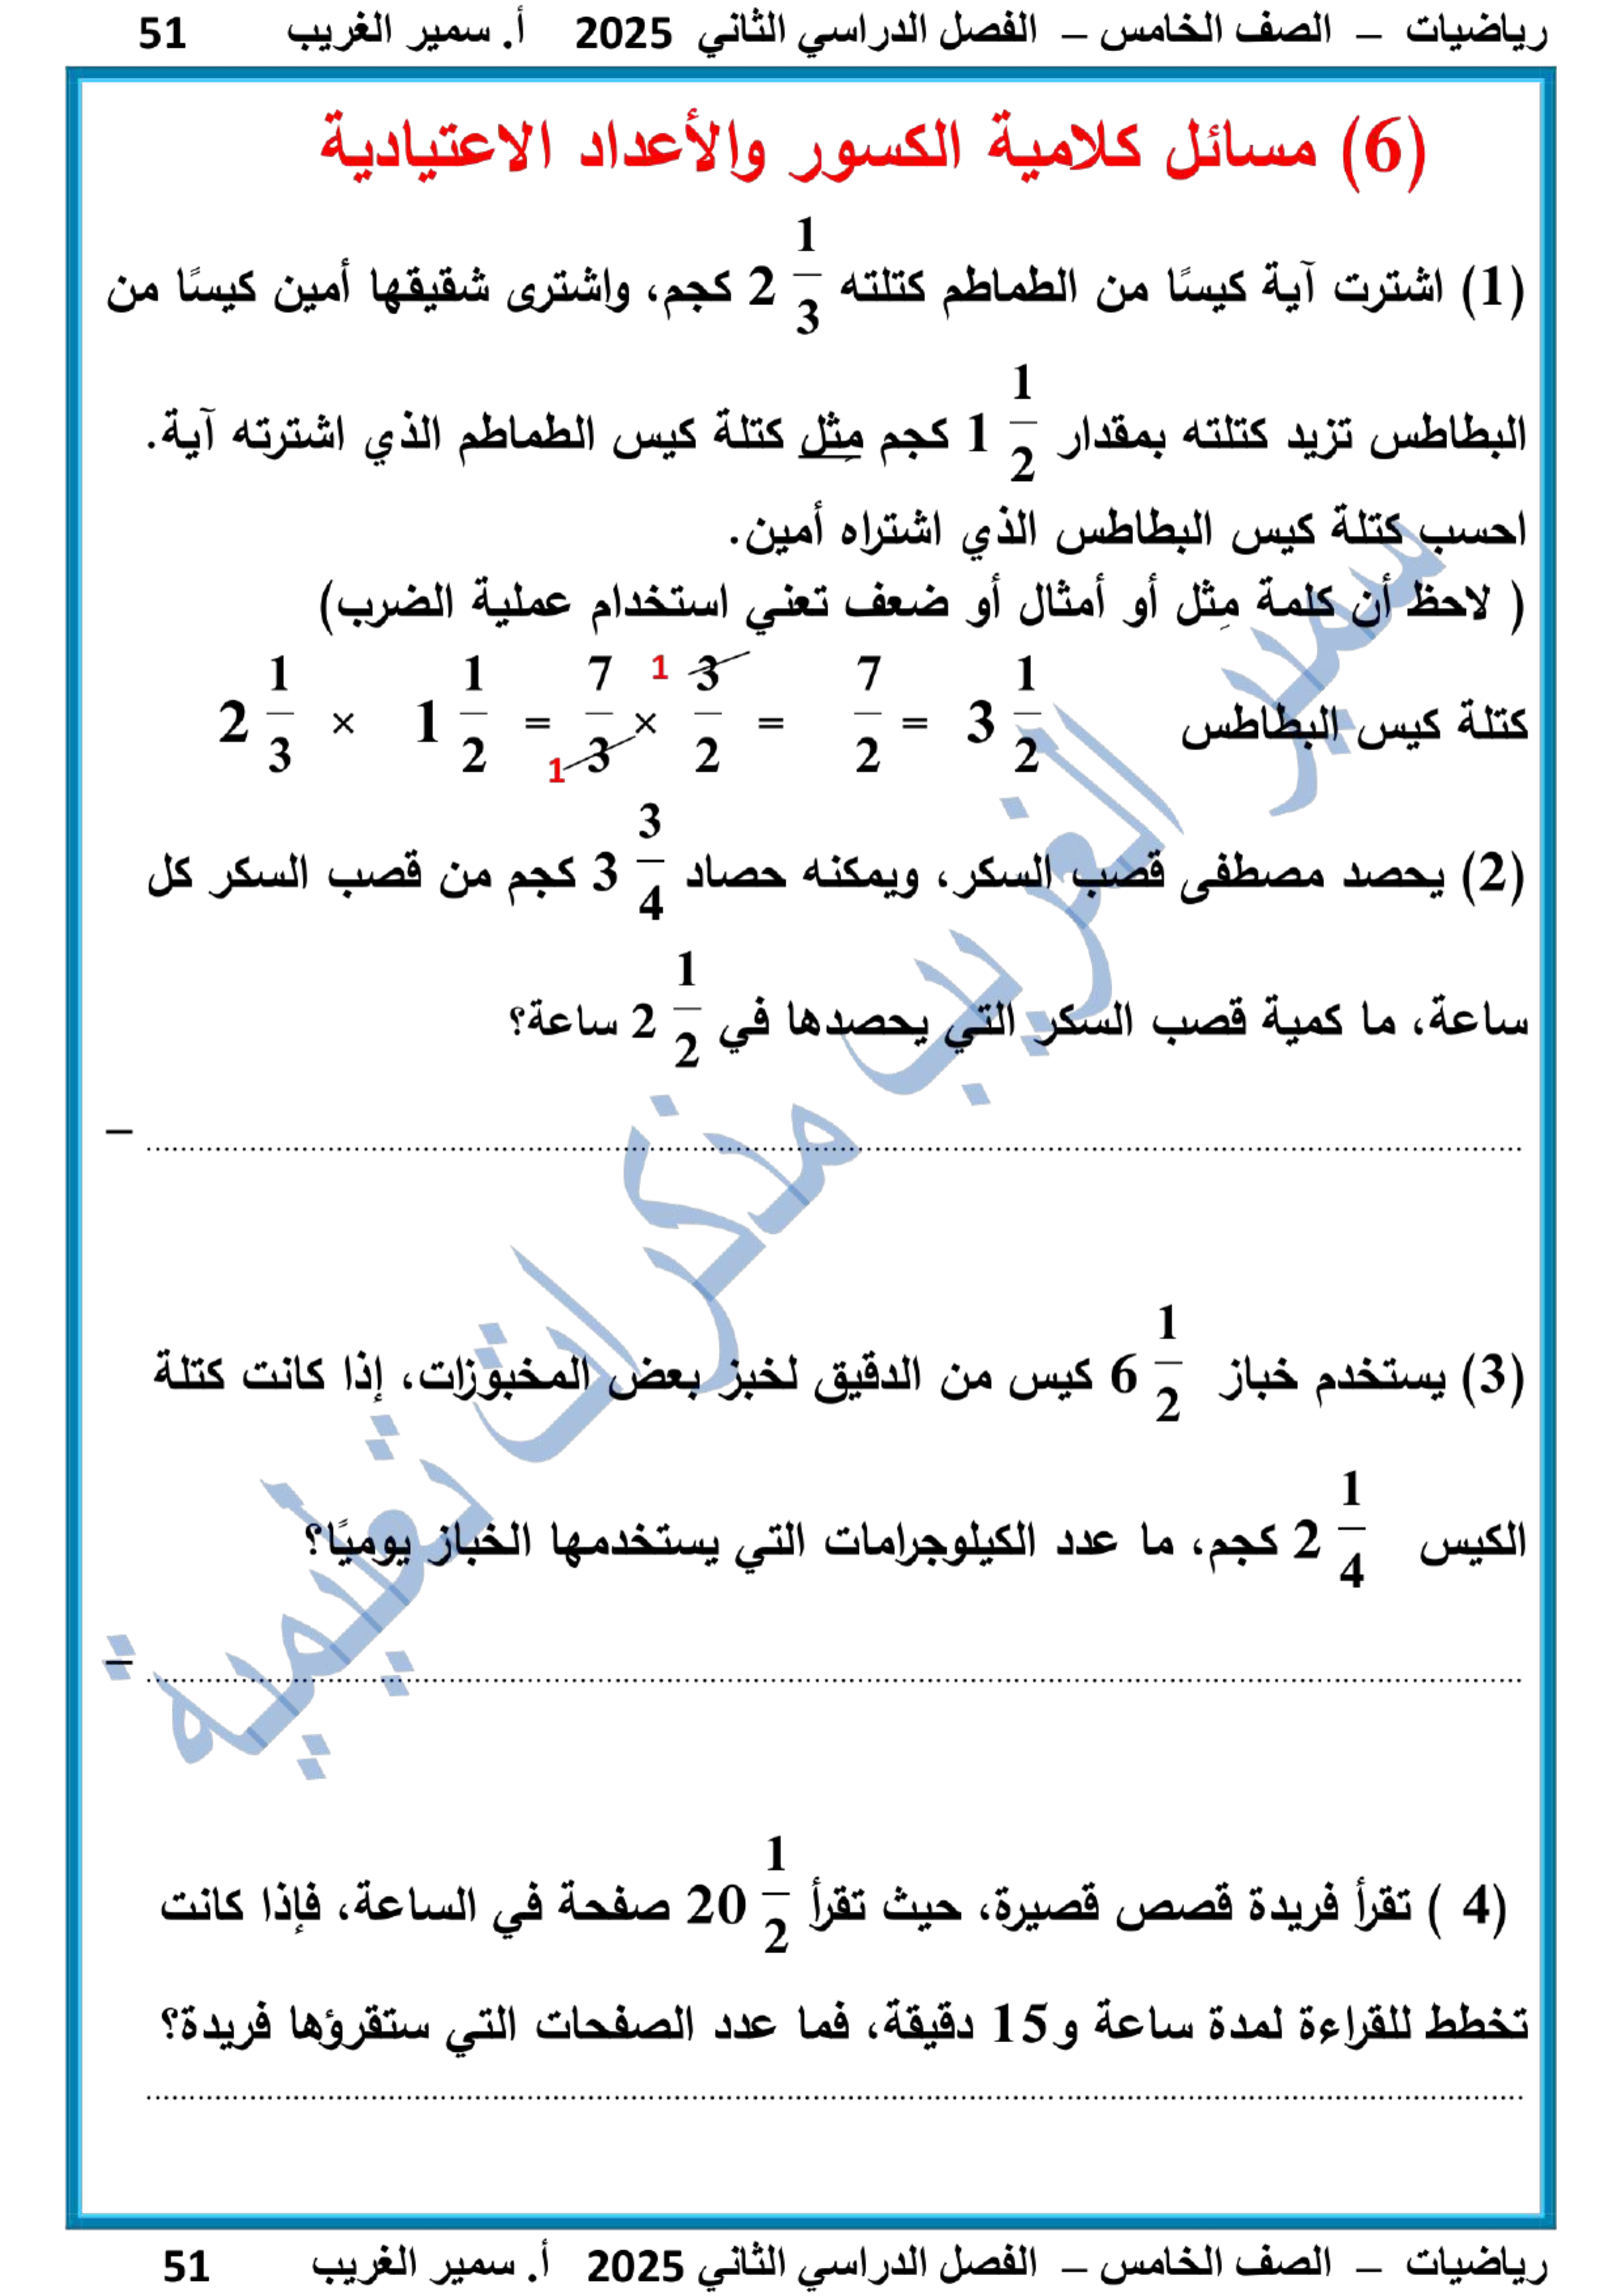 رياضيات – الصف الخامس – الفصل الدراسي الثاني 2025 أ. سمير الغريب 51
(6) مسائل كلامية الكسور والأعداد الاعتيادية
(1) اشترت آية كيسًا من الطماطم كتلته 2 1/3 كجم، واشترى شقيقها أمين كيسًا من
البطاطس تزيد كتلته بمقدار 1 1/2 كجم مِثل كتلة كيس الطماطم الذي اشترته آية.
احسب كتلة كيس البطاطس الذي اشتراه أمين.
( لاحظ أن كلمة مِثل أو أمثال أو ضعف تعني استخدام عملية الضرب)
كتلة كيس البطاطس 2 1/3 × 1 1/2 = 7/3 1 × 3/2 1 = 7/2 = 3 1/2
(2) يحصد مصطفى قصب السكر، ويمكنه حصاد 3 3/4 كجم من قصب السكر كل
ساعة، ما كمية قصب السكر التي يحصدها في 2 1/2 ساعة؟
................ –
(3) يستخدم خباز 6 1/2 كيس من الدقيق لخبز بعض المخبوزات، إذا كانت كتلة
الكيس 2 1/4 كجم، ما عدد الكيلوجرامات التي يستخدمها الخباز يوميًا؟
................ –
(4 ) تقرأ فريدة قصص قصيرة، حيث تقرأ 20 1/2 صفحة في الساعة، فإذا كانت
تخطط للقراءة لمدة ساعة و15 دقيقة، فما عدد الصفحات التي ستقرؤها فريدة؟
................
سمير الغريب مذكرات تعليمية
رياضيات – الصف الخامس – الفصل الدراسي الثاني 2025 أ. سمير الغريب 51